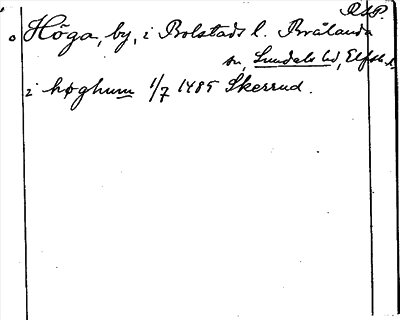 RAP.
Höga, by, i Bolstads l. Brålanda
sn, Sundals hd, Elfsb. l.
i høghum 1/7 1485 Skerrud.